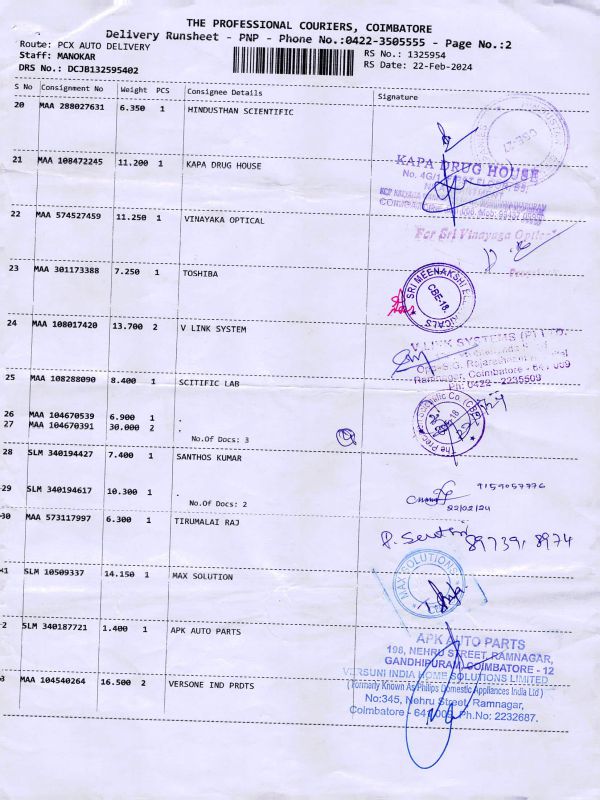 THE PROFESSIONAL COURIERS, COIMBATORE
Delivery Runsheet - PNP - Phone No.:0422-3505555 - Page No.:2
Route: PCX AUTO DELIVERY
RS No.: 1325954
Staff: MANOKAR
RS Date: 22-Feb-2024
DRS No.: DCJB132595402
S No Consignment No Weight PCS Consignee Details Signature
20 MAA 288027631 6.350 1 HINDUSTHAN SCIENTIFIC
21 MAA 108472245 11.200 1 KAPA DRUG HOUSE
KAPA DRUG HOUSE
No. 4G/1
22 MAA 574527459 11.250 1 VINAYAKA OPTICAL
For Sri Vinayaga Optical
23 MAA 301173388 7.250 1 TOSHIBA
SRI MEENAKSHI ELECTRICALS
CBE-18.
24 MAA 108017420 13.700 2 V LINK SYSTEM
V LINK SYSTEMS (P) LTD.
Ramnagar, Coimbatore - 641 009
Ph: 0422 - 2235509
25 MAA 108288090 8.400 1 SCITIFIC LAB
26 MAA 104670539 6.900 1 .
27 MAA 104670391 30.000 2 .
No.Of Docs: 3
28 SLM 340194427 7.400 1 SANTHOS KUMAR
29 SLM 340194617 10.300 1 .
9159057776
22/02/24
No.Of Docs: 2
30 MAA 573117997 6.300 1 TIRUMALAI RAJ
89739, 8974
31 SLM 10509337 14.150 1 MAX SOLUTION
MAX SOLUTIONS
2 SLM 340187721 1.400 1 APK AUTO PARTS
APK AUTO PARTS
198, NEHRU STREET, RAMNAGAR,
GANDHIPURAM, COIMBATORE - 12
3 MAA 104540264 16.500 2 VERSONE IND PRDTS
VERSUNI INDIA HOME SOLUTIONS LIMITED
(Formerly Known As Philips Domestic Appliances India Ltd)
No:345, Nehru Street, Ramnagar,
Coimbatore - 641 009. Ph.No: 2232687.